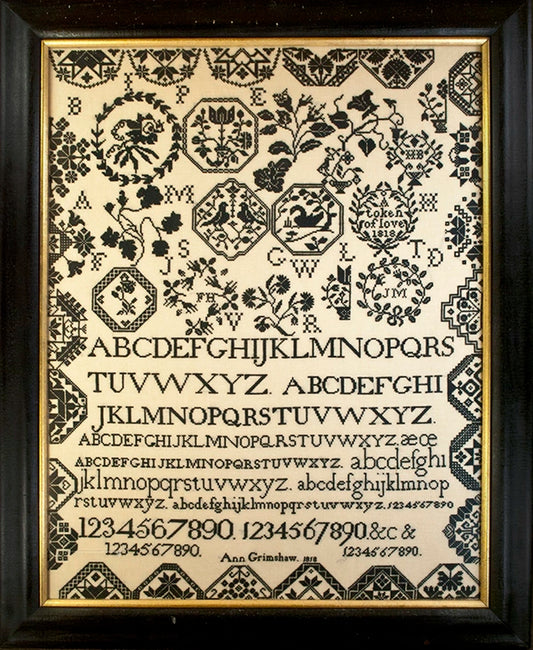 I P E
8
A M H
A
token
of love
1818
F J S G W L T D
FH JM
V R
ABCDEFGHIJKLMNOPQRS
TUVWXYZ. ABCDEFGHI
JKLMNOPQRSTUVWXYZ.
ABCDEFGHIJKLMNOPQRSTUVWXYZ.æœ
ABCDEFGHIJKLMNOPQRSTUVWXYZ. abcdefghi
jklmnopqrstuvwxyz. abcdefghijklmnop
rstuvwxyz. abcdefghijklmnopqrstuvwxyz. 1234567890
1234567890. 1234567890.&c &
1234567890. Ann Grimshaw. 1818 1234567890.